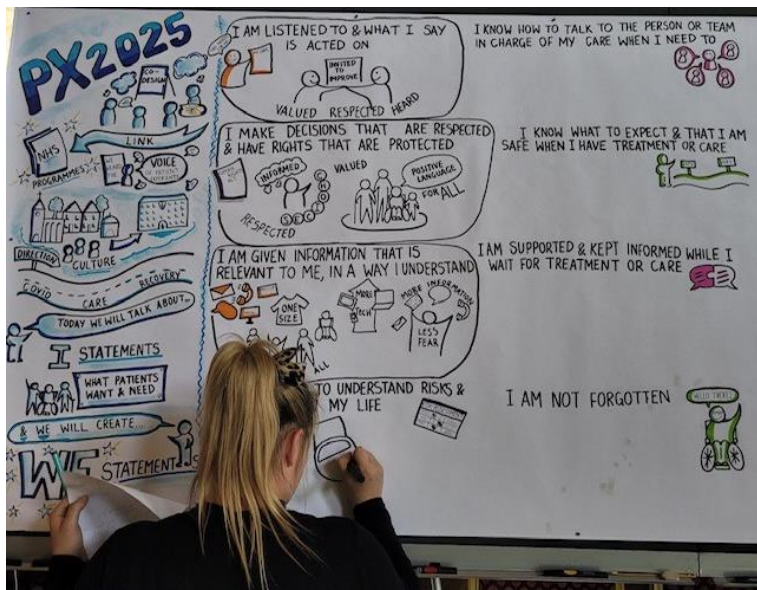 PX2025
CO-
DESIGN
LINK
NHS
PROGRAMMES
VOICE
DIRECTION
CULTURE
COVID
CARE
RECOVERY
TODAY WE WILL TALK ABOUT...
I STATEMENTS
WHAT PATIENTS
WANT & NEED
& WE WILL CREATE...
WE STATEMENTS
I AM LISTENED TO & WHAT I SAY
IS ACTED ON
INVITED
TO
IMPROVE
VALUED RESPECTED HEARD
I MAKE DECISIONS THAT ARE RESPECTED
& HAVE RIGHTS THAT ARE PROTECTED
INFORMED
VALUED
POSITIVE
LANGUAGE
FOR ALL
RESPECTED
I AM GIVEN INFORMATION THAT IS
RELEVANT TO ME, IN A WAY I UNDERSTAND
ONE
SIZE
ALL
MORE
TECH
MORE INFORMATION
LESS
FEAR
TO UNDERSTAND RISKS &
MY LIFE
I KNOW HOW TO TALK TO THE PERSON OR TEAM
IN CHARGE OF MY CARE WHEN I NEED TO
I KNOW WHAT TO EXPECT & THAT I AM
SAFE WHEN I HAVE TREATMENT OR CARE
I AM SUPPORTED & KEPT INFORMED WHILE I
WAIT FOR TREATMENT OR CARE
I AM NOT FORGOTTEN